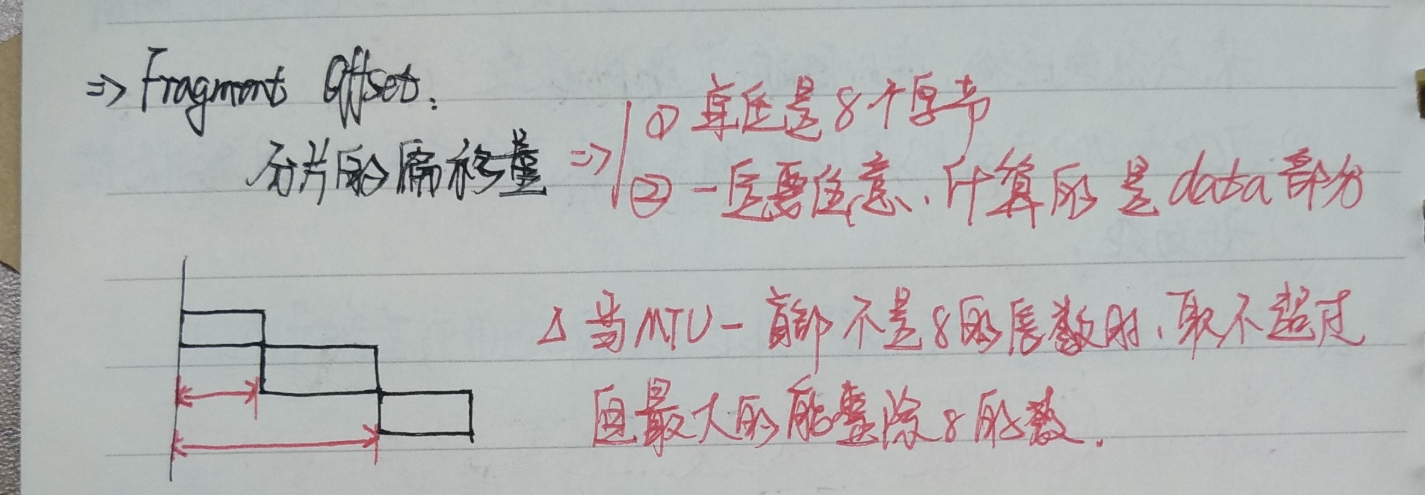 => Fragment Offset:
分片的偏移量 => ① 单位是8个字节
② 一定要注意、计算的是data部分
△ 当MTU-首部不是8的倍数时、取不超过
且最大的能整除8的数.